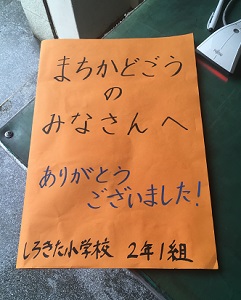 まちかどごう
の
みなさんへ
ありがとう
ございました!
しろきた小学校 2年1組